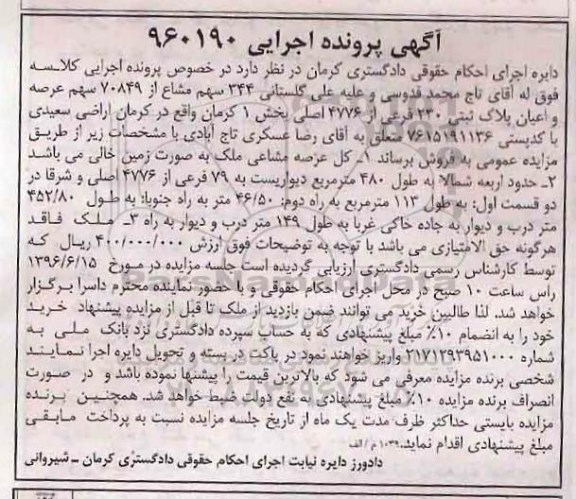 آگهی پرونده اجرایی ۹۶۰۱۹۰
دایره اجرای احکام حقوقی دادگستری کرمان در نظر دارد در خصوص پرونده اجرایی کلاسه
فوق له آقای تاج محمد قدوسی و علیه علی گلستانی ۳۴۴ سهم مشاع از ۷۰۸۴۹ سهم عرصه
و اعیان پلاک ثبتی ۲۳۰ فرعی از ۴۷۷۶ اصلی بخش ۱ کرمان واقع در کرمان اراضی سعیدی
با کدپستی ۷۶۱۵۱۹۱۱۳۶ متعلق به آقای رضا عسکری تاج آبادی با مشخصات زیر از طریق
مزایده عمومی به فروش برساند ۱ـ کل عرصه مشاعی ملک به صورت زمین خالی می باشد
۲ـ حدود اربعه شمالا به طول ۴۸۰ مترمربع دیواریست به ۷۹ فرعی از ۴۷۷۶ اصلی و شرقا در
دو قسمت اول: به طول ۱۱۳ مترمربع به راه دوم: ۴۶/۵۰ متر به راه جنوبا: به طول ۴۵۲/۸۰
متر درب و دیوار به جاده خاکی غربا به طول ۱۴۹ متر درب و دیوار به راه ۳ـ ملک فاقد
هرگونه حق الامتیازی می باشد با توجه به توضیحات فوق ارزش ۴۰۰/۰۰۰/۰۰۰ ریال که
توسط کارشناس رسمی دادگستری ارزیابی گردیده است جلسه مزایده در مورخ ۱۳۹۶/۶/۱۵
راس ساعت ۱۰ صبح در محل اجرای احکام حقوقی و با حضور نماینده محترم داسرا برگزار
خواهد شد. لذا طالبین خرید می توانند ضمن بازدید از ملک تا قبل از مزایده پیشنهاد خرید
خود را به انضمام ۱۰٪ مبلغ پیشنهادی که به حساب سپرده دادگستری نزد بانک ملی به
شماره ۲۱۷۱۲۹۳۹۵۱۰۰۰ واریز خواهند نمود در پاکت در بسته و تحویل دایره اجرا نمایند
شخصی برنده مزایده معرفی می شود که بالاترین قیمت را پیشنها نموده باشد و در صورت
انصراف برنده مزایده ۱۰٪ مبلغ پیشنهادی به نفع دولت ضبط خواهد شد. همچنین برنده
مزایده بایستی حداکثر ظرف مدت یک ماه از تاریخ جلسه مزایده نسبت به پرداخت مابقی
مبلغ پیشنهادی اقدام نماید. ۱۰۳۹ م/الف
دادورز دایره نیابت اجرای احکام حقوقی دادگستری کرمان ـ شیروانی